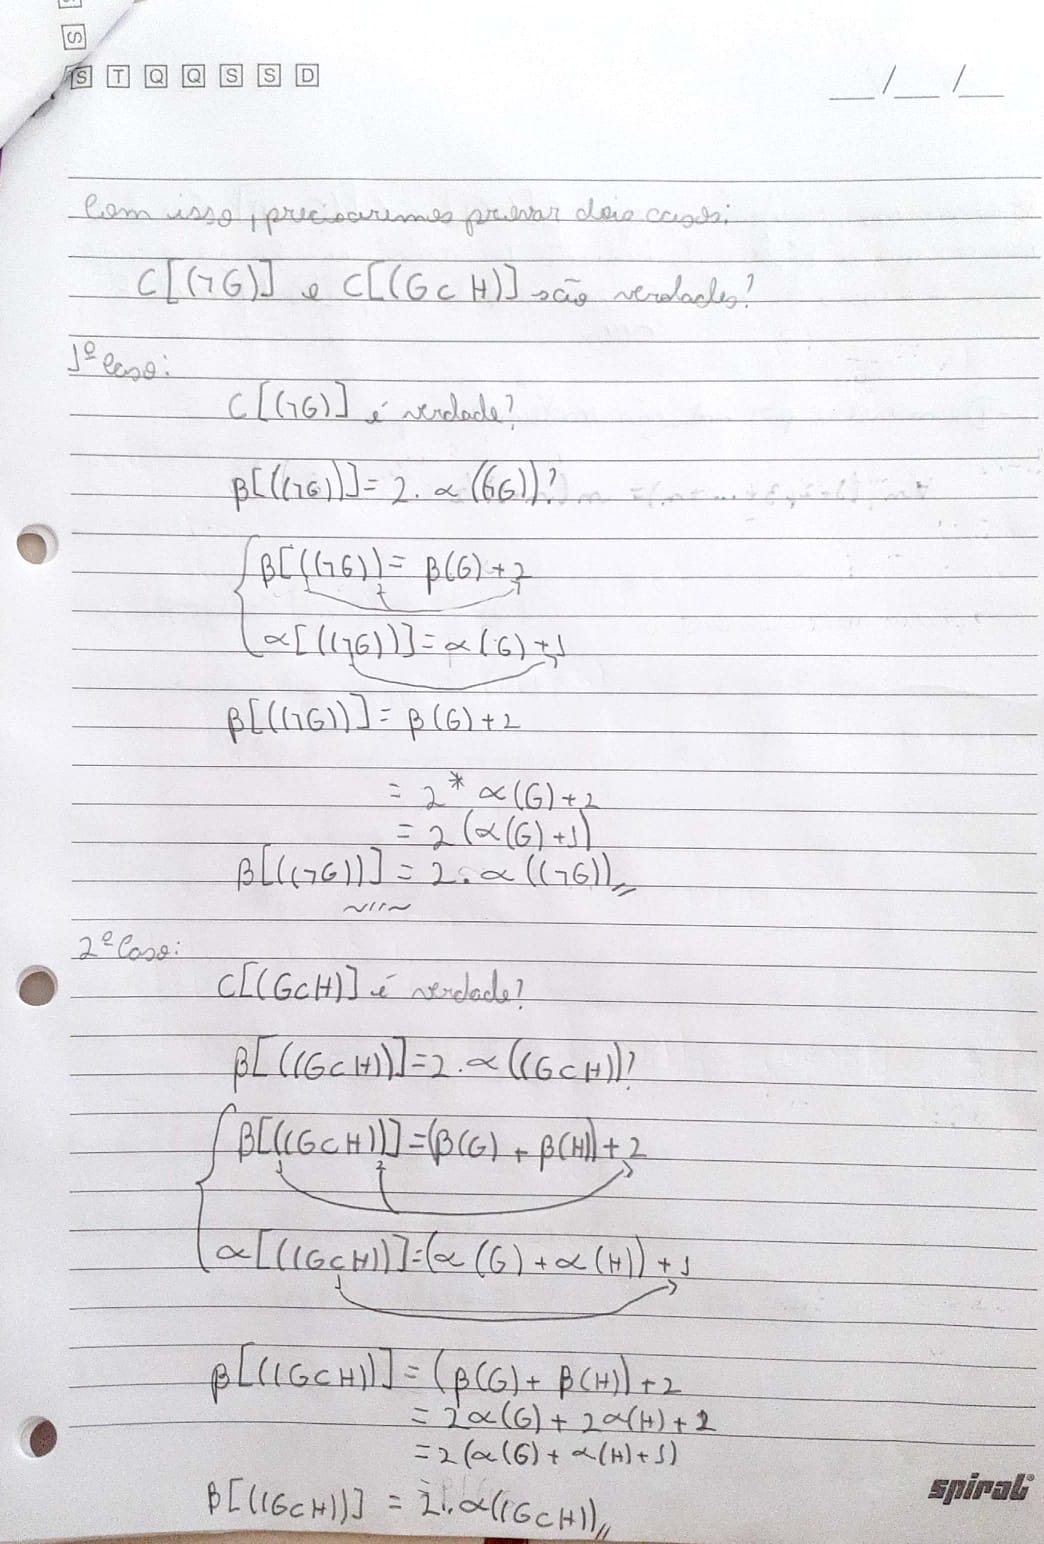 S
S T Q Q S S D
__/__/__
Com isso, precisaremos provar dois casos:
C[(¬G)] e C[(GcH)] são verdades?
1º Caso:
C[(¬G)] é verdade?
β[((¬G))] = 2. α(¬G))?
β[((¬G)) = β(G) + 2
α[((¬G))] = α(G) + 1
β[((¬G))] = β(G) + 2
= 2 * α(G) + 2
= 2 (α(G) + 1)
β[((¬G))] = 2. α((¬G))
2º Caso:
C[(GcH)] é verdade?
β[((GcH))] = 2. α((GcH))?
β[((GcH))] = (β(G) + β(H)) + 2
α[((GcH))] = (α(G) + α(H)) + 1
β[((GcH))] = (β(G) + β(H)) + 2
= 2α(G) + 2α(H) + 2
= 2 (α(G) + α(H) + 1)
β[((GcH))] = 2. α((GcH))
spiral